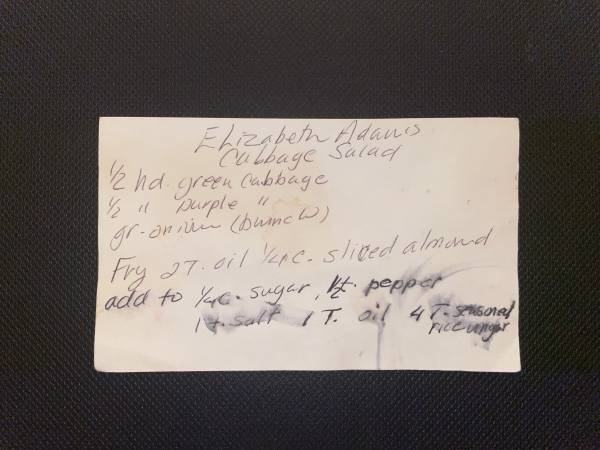 Elizabeth Adams
Cabbage Salad
1/2 hd. green cabbage
1/2 " purple "
gr. onion (bunch)
Fry 2T. oil 1/4 c. sliced almond
add to 1/4 c. sugar, 1/2 t. pepper
1 t. salt 1 T. oil 4 T. seasoned
rice vingar